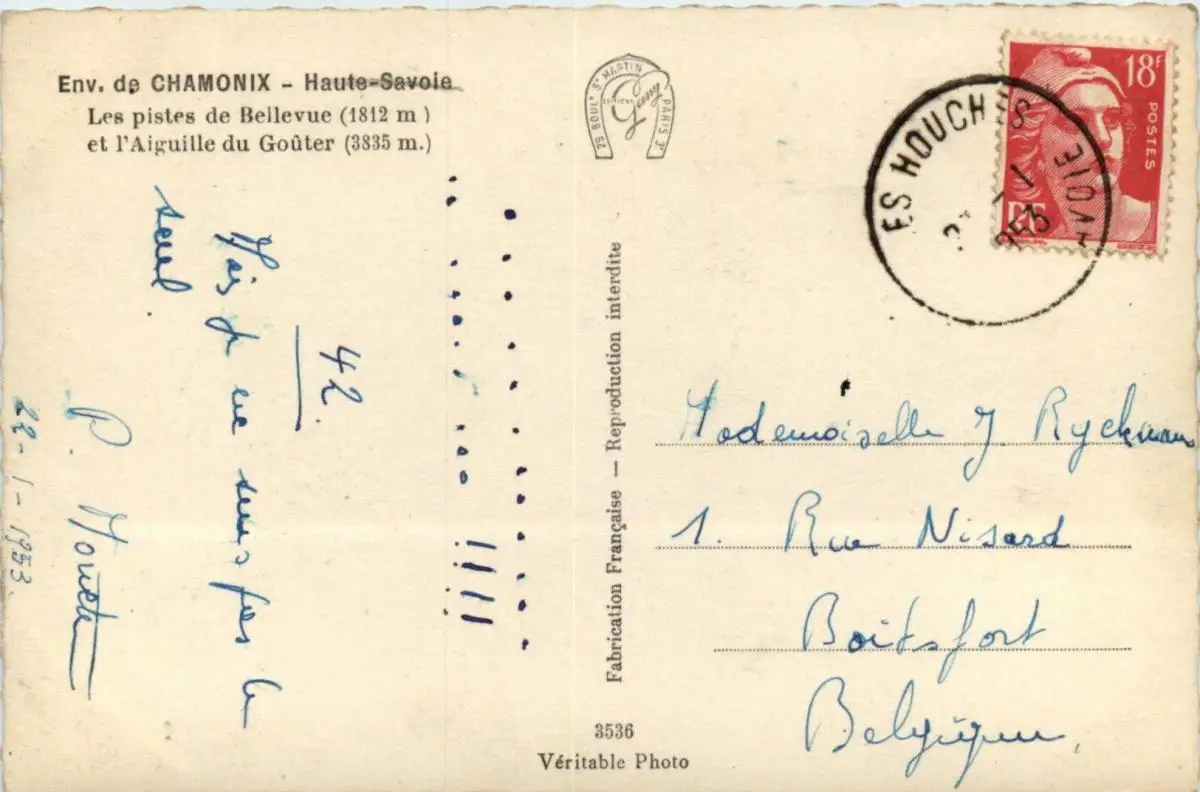 Env. de CHAMONIX - Haute-Savoie
Les pistes de Bellevue (1812 m)
et l'Aiguille du Goûter (3835 m.)
25 BOULD ST MARTIN PARIS 3E
EDITIONS
Gamy
18F
POSTES
RF
ES HOUCHES
AVOIE
953
. . . . . . . . . . . . . . . . . . . . !!!!
42.
Mais je ne suis pas le
seul
P.
22-1-1953.
Fabrication Française — Reproduction interdite
Mademoiselle J. Ryckmans
1. Rue Nisard
Boitsfort
Belgique
3536
Véritable Photo